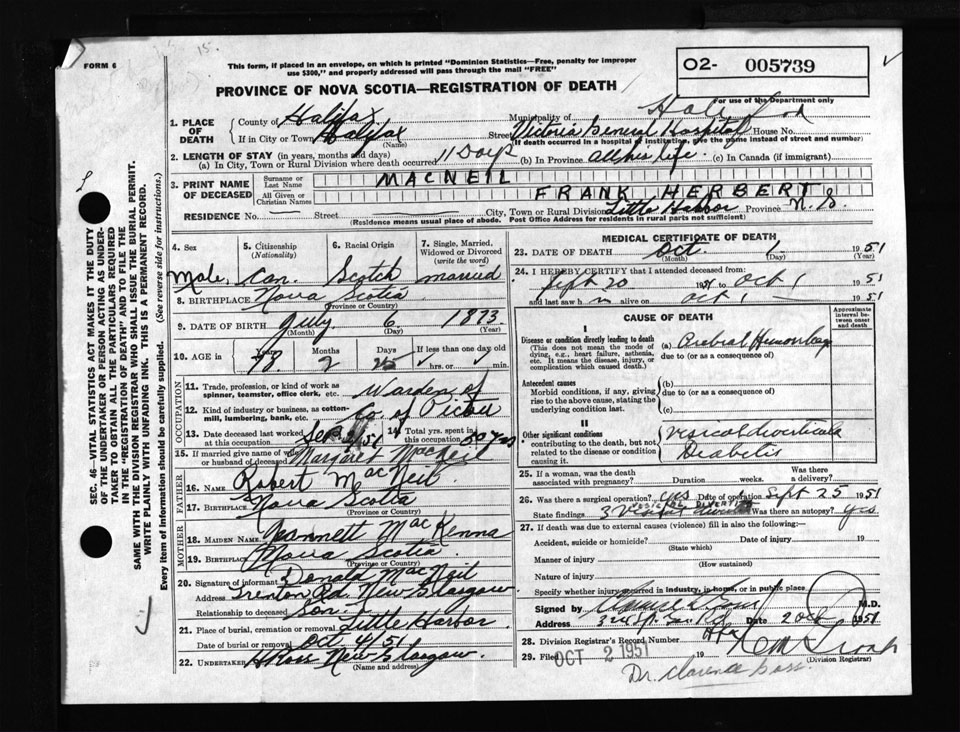 15.
FORM 6
This form, if placed in an envelope, on which is printed "Dominion Statistics—Free, penalty for improper
use $300," and properly addressed will pass through the mail "FREE"
O2- 005739
PROVINCE OF NOVA SCOTIA—REGISTRATION OF DEATH
For use of the Department only
1. PLACE OF DEATH
County of Halifax
Municipality of
If in City or Town Halifax
(Name)
Street Victoria General Hospital House No.
(If death occurred in a hospital or institution, give the name instead of street and number)
2. LENGTH OF STAY (in years, months and days)
(a) In City, Town or Rural Division where death occurred 11 Days (b) In Province all his life. (c) In Canada (if immigrant)
3. PRINT NAME OF DECEASED
Surname or Last Name MACNEIL
All Given or Christian Names FRANK HERBERT
RESIDENCE No. Street City, Town or Rural Division Little Harbor Province N.S.
(Residence means usual place of abode. Post Office Address for residents in rural parts not sufficient)
4. Sex
Male.
5. Citizenship
(Nationality)
Can.
6. Racial Origin
Scotch
7. Single, Married, Widowed or Divorced
(write the word)
married
8. BIRTHPLACE Nova Scotia
(Province or Country)
9. DATE OF BIRTH July 6 1873
(Month) (Day) (Year)
10. AGE in Years 78 Months 2 Days 25 If less than one day old
hrs. or min.
OCCUPATION
11. Trade, profession, or kind of work as
spinner, teamster, office clerk, etc. Warden of
12. Kind of industry or business, as cotton-
mill, lumbering, bank, etc. Co. of Pictou
13. Date deceased last worked at this occupation. Sep. /51
14. Total yrs. spent in this occupation 50 yrs
15. If married give name of wife or husband of deceased Margaret MacNeil
FATHER
16. Name Robert MacNeil
17. Birthplace Nova Scotia
(Province or Country)
MOTHER
18. MAIDEN NAME Jeannett MacKenna
19. BIRTHPLACE Nova Scotia
(Province or Country)
20. Signature of informant Donald MacNeil
Address Trenton Rd. New Glasgow
Relationship to deceased Son
21. Place of burial, cremation or removal Little Harbor
Date of burial or removal Oct 4/51
22. UNDERTAKER New Glasgow.
(Name and address)
MEDICAL CERTIFICATE OF DEATH
23. DATE OF DEATH Oct. 1 1951
(Month) (Day) (Year)
24. I HEREBY CERTIFY that I attended deceased from
Sept 20 1951 to Oct 1 1951
and last saw h m alive on Oct 1 1951
CAUSE OF DEATH
Approximate interval between onset and death
I
Disease or condition directly leading to death
(This does not mean the mode of dying, e.g., heart failure, asthenia, etc. It means the disease, injury, or complication which caused death.)
(a) Cerebral Hemorrhage
due to (or as a consequence of)
Antecedent causes
Morbid conditions, if any, giving rise to the above cause, stating the underlying condition last.
(b)
due to (or as a consequence of)
(c)
II
Other significant conditions
contributing to the death, but not related to the disease or condition causing it.
Vesical diverticula
Diabetis
25. If a woman, was the death associated with pregnancy? Duration weeks. Delivery?
26. Was there a surgical operation? yes Date of operation Sept 25 1951
State findings 3 VESICAL DIVERTIC Was there an autopsy? Yes
27. If death was due to external causes (violence) fill in also the following:—
Accident, suicide or homicide? Date of injury 19
(State which)
Manner of injury
(How sustained)
Nature of injury
Specify whether injury occurred in industry, in home, or in public place
Signed by M.D.
Address Date 2 Oct 1951
28. Division Registrar's Record Number
29. Filed OCT 2 1951 19
(Division Registrar)
Dr. Clarence Gass.
SEC. 46—VITAL STATISTICS ACT MAKES IT THE DUTY
OF THE UNDERTAKER OR PERSON ACTING AS UNDER-
TAKER TO OBTAIN ALL THE PARTICULARS REQUIRED
IN THE "REGISTRATION OF DEATH" AND TO FILE THE
SAME WITH THE DIVISION REGISTRAR WHO SHALL ISSUE THE BURIAL PERMIT.
WRITE PLAINLY WITH UNFADING INK. THIS IS A PERMANENT RECORD.
Every item of information should be carefully supplied. (See reverse side for instructions.)